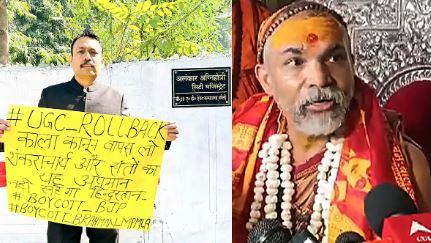 #UGC_ROLLBACK
काला कानून वापस लो
शंकराचार्य और संतों का
यह अपमान
नहीं सहेगा हिंदुस्तान-
#BOYCOTT_BJP
#BOYCOTT BRAHMAN_MP MLA
अलंकार अग्निहोत्री
सिटी मजिस्ट्रेट